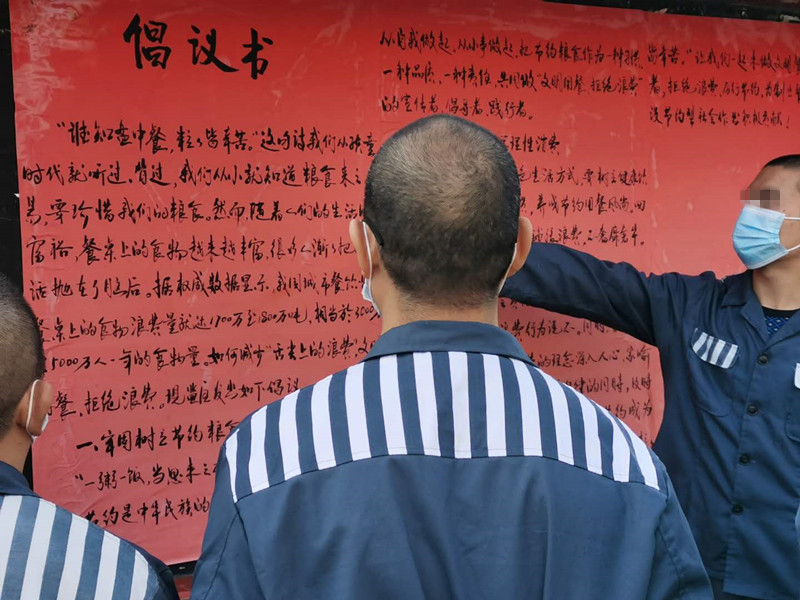 倡议书
"谁知盘中餐,粒粒皆辛苦。"这句诗我们从孩童
时代就听过、背过,我们从小就知道粮食来之
易,要珍惜我们的粮食。然而,随着人们的生活
富裕,餐桌上的食物越来越丰富,很多人渐渐把
活抛在了脑后。据权威数据显示,我国城市餐饮
餐桌上的食物浪费量就达1700万至1800万吨,相当於3000
5000万人一年的食物量。如何减少"舌尖上的浪费"
餐、拒绝浪费。现
发出如下倡议
一、牢固树立节约粮食
"一粥一饭,当思来之
节约是中华民族的
从自我做起、从小事做起,把节约粮食作为一种习惯、
一种品质、一种责任,共同做"文明用餐 拒绝浪费"
的宣传者、倡导者、践行者。
皆辛苦。"让我们一起来做文明
者,拒绝浪费、厉行节约,为
设节约型社会作出积极贡献!
理性消费
生活方式,要树立健康
养成节约用餐风尚。
浪费
费行为说不。同时
的理念深入人心
的同时,及时
约成为